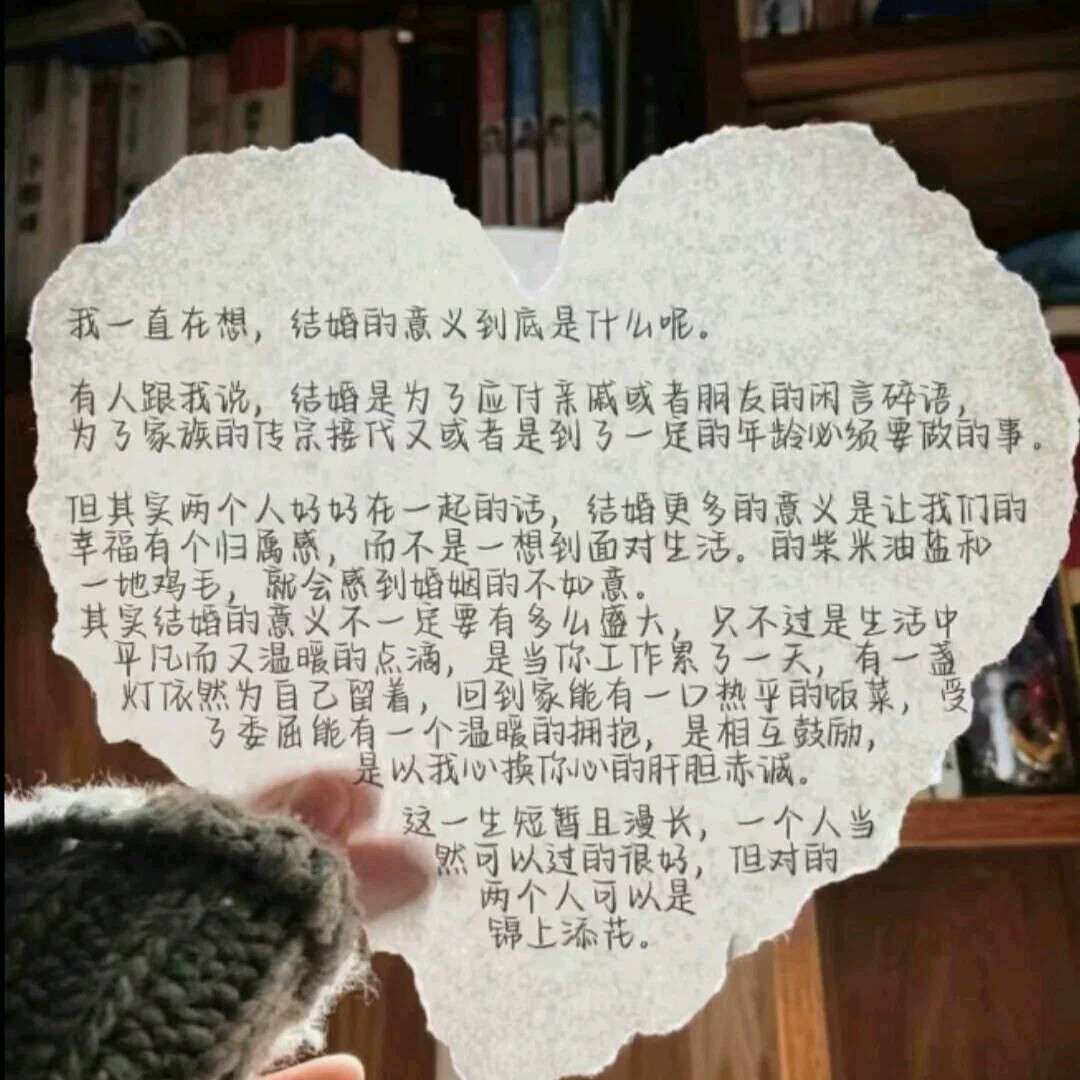 我一直在想，结婚的意义到底是什么呢。
有人跟我说，结婚是为了应付亲戚或者朋友的闲言碎语，
为了家族的传宗接代又或者是到了一定的年龄必须要做的事。
但其实两个人好好在一起的话，结婚更多的意义是让我们的
幸福有个归属感，而不是一想到面对生活。的柴米油盐和
一地鸡毛，就会感到婚姻的不如意。
其实结婚的意义不一定要有多么盛大，只不过是生活中
平凡而又温暖的点滴，是当你工作累了一天，有一盏
灯依然为自己留着，回到家能有一口热乎的饭菜，受
了委屈能有一个温暖的拥抱，是相互鼓励，
是以我心换你心的肝胆赤诚。
这一生短暂且漫长，一个人当
然可以过的很好，但对的
两个人可以是
锦上添花。